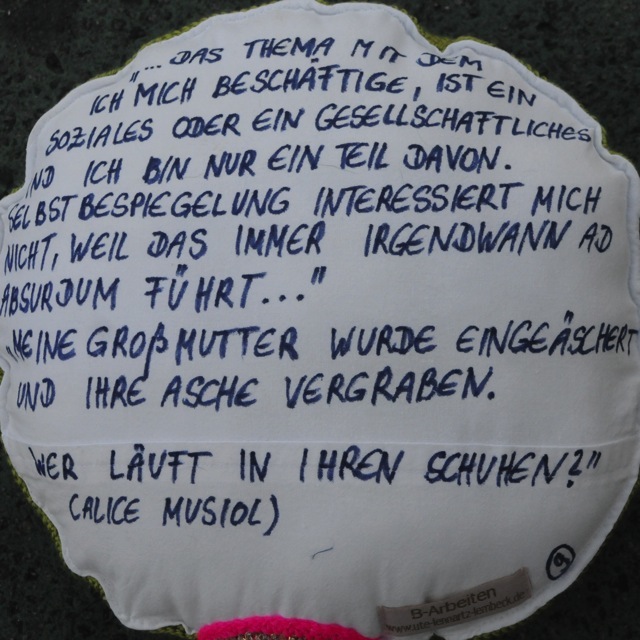 "... DAS THEMA MIT DEM
ICH MICH BESCHÄFTIGE, IST EIN
SOZIALES ODER EIN GESELLSCHAFTLICHES
UND ICH BIN NUR EIN TEIL DAVON.
SELBSTBESPIEGELUNG INTERESSIERT MICH
NICHT, WEIL DAS IMMER IRGENDWANN AD
ABSURDUM FÜHRT..."
"MEINE GROßMUTTER WURDE EINGEÄSCHERT
UND IHRE ASCHE VERGRABEN.
WER LÄUFT IN IHREN SCHUHEN?"
(ALICE MUSIOL)
9
B-Arbeiten